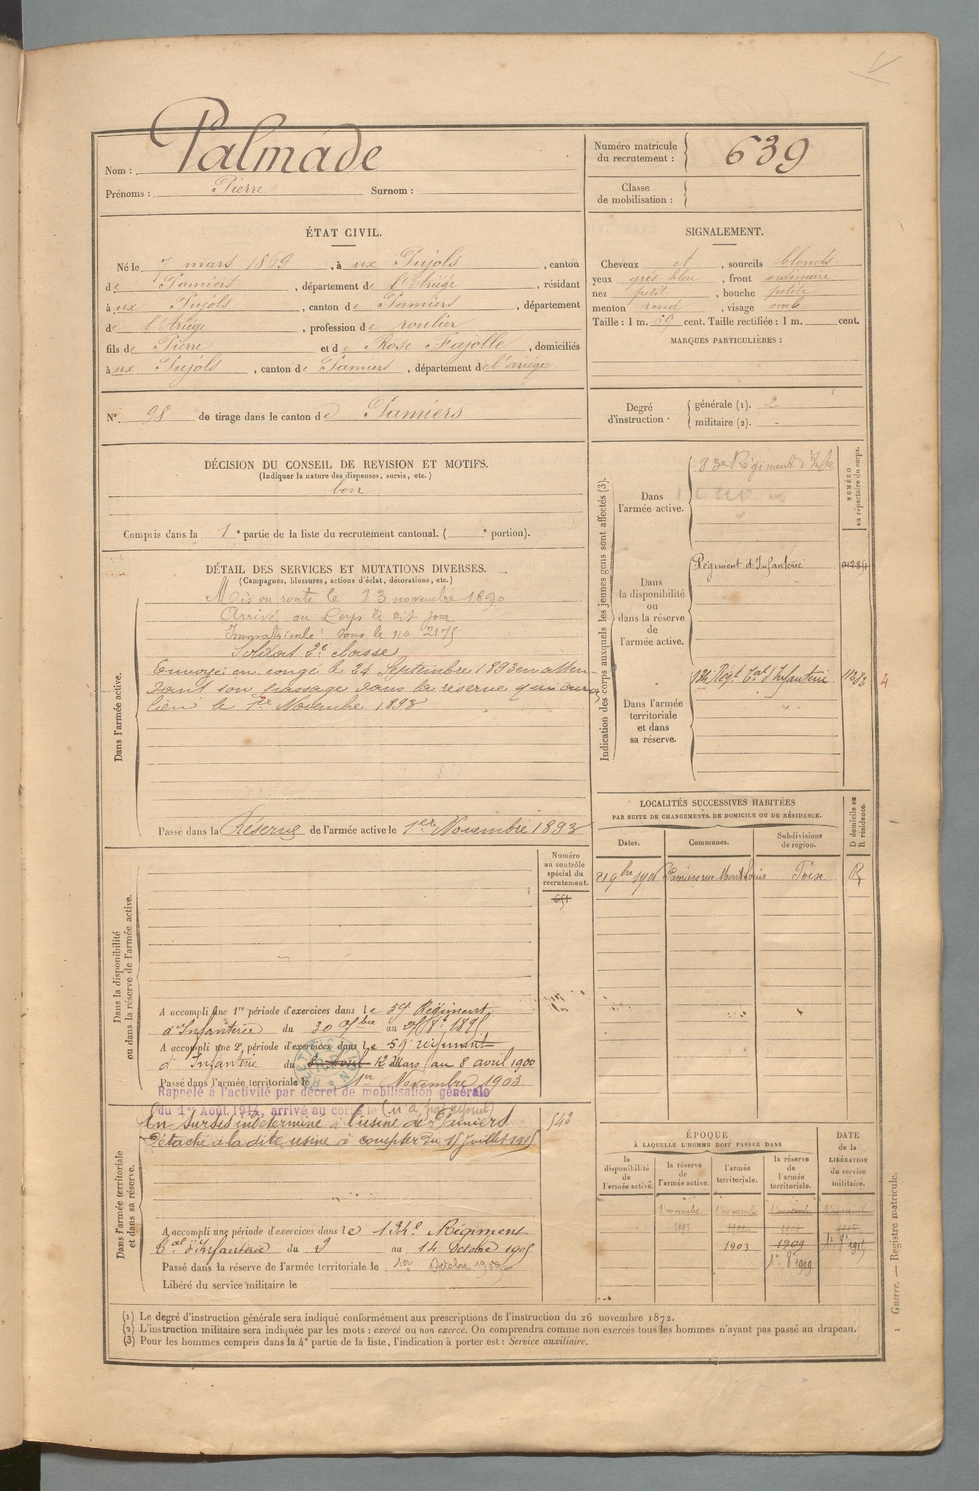 Nom : Palmade
Prénoms : Pierre Surnom :
Numéro matricule du recrutement : 639
Classe de mobilisation :
ÉTAT CIVIL.
Né le 7 mars 1869, à ux Pujols, canton
de Pamiers, département de l'Ariège, résidant
à ux Pujols, canton de Pamiers, département
de l'Ariège, profession de roulier
fils de Pierre et de Rose Fajolle, domiciliés
à ux Pujols, canton de Pamiers, département de l'ariège
SIGNALEMENT.
Cheveux et, sourcils blonds
yeux gris bleu, front ordinaire
nez petit, bouche petite
menton rond, visage ovale
Taille : 1 m. 69 cent. Taille rectifiée : 1 m. cent.
MARQUES PARTICULIÈRES :
N° 98 de tirage dans le canton de Pamiers
Degré d'instruction. générale (1). 2
militaire (2). -
DÉCISION DU CONSEIL DE REVISION ET MOTIFS.
(Indiquer la nature des dispenses, sursis, etc.)
bon
Compris dans la 1e partie de la liste du recrutement cantonal. ( e portion).
DÉTAIL DES SERVICES ET MUTATIONS DIVERSES.
(Campagnes, blessures, actions d'éclat, décorations, etc.)
Dans l'armée active.
Mis en route le 13 novembre 1890
Arrivé au Corps le dit jour
Immatriculé sous le no 2175
Soldat 2e classe
Envoyé en congé le 24 Septembre 1893 en atten-
dant son passage dans la réserve qui aura
lieu le 1er Novembre 1893
Passé dans la Réserve de l'armée active le 1er Novembre 1893
Indication des corps auxquels les jeunes gens sont affectés (3).
NUMÉRO au répertoire du corps.
Dans l'armée active.
83e Régiment d'Infie
Dans la disponibilité ou dans la réserve de l'armée active.
Régiment d'Infanterie
Dans l'armée territoriale et dans sa réserve.
134 Régt Tal d'Infanterie
4
LOCALITÉS SUCCESSIVES HABITÉES
PAR SUITE DE CHANGEMENTS DE DOMICILE OU DE RÉSIDENCE.
Dates. Communes. Subdivisions de région. D domicile ou R résidence.
Pamiers rue Montlouis Foix R
Dans la disponibilité ou dans la réserve de l'armée active.
Numéro au contrôle spécial du recrutement.
651
A accompli une 1re période d'exercices dans le 59e Régiment
d'Infanterie du 30 7bre au
A accompli une 2e période d'exercices dans le 59e régiment
d'Infanterie du 12 Mars au 8 avril 1900
Passé dans l'armée territoriale le 1er Novembre 1903
Rappelé à l'activité par décret de mobilisation générale
du 1er Août 1914, arrivé au corps le (n'a pas rejoint)
Dans l'armée territoriale et dans sa réserve.
En sursis indéterminé à l'usine de Pamiers 543
Détaché à la dite usine à compter du 15 Juillet 1915
A accompli une période d'exercices dans le 134e Régiment
Tal d'Infanterie du 2 au 14 Octobre 1905
Passé dans la réserve de l'armée territoriale le 1er Octobre 1909
Libéré du service militaire le
ÉPOQUE
À LAQUELLE L'HOMME DOIT PASSER DANS
la disponibilité de l'armée active. la réserve de l'armée active. l'armée territoriale. la réserve de l'armée territoriale.
DATE de la LIBÉRATION du service militaire.
1 novembre 1 novembre
1893
1903 1909
1er 8e 1909
(1) Le degré d'instruction générale sera indiqué conformément aux prescriptions de l'instruction du 26 novembre 1872.
(2) L'instruction militaire sera indiquée par les mots : exercé ou non exercé. On comprendra comme non exercés tous les hommes n'ayant pas passé au drapeau.
(3) Pour les hommes compris dans la 4e partie de la liste, l'indication à porter est : Service auxiliaire.
1 Guerre. — Registre matricule.